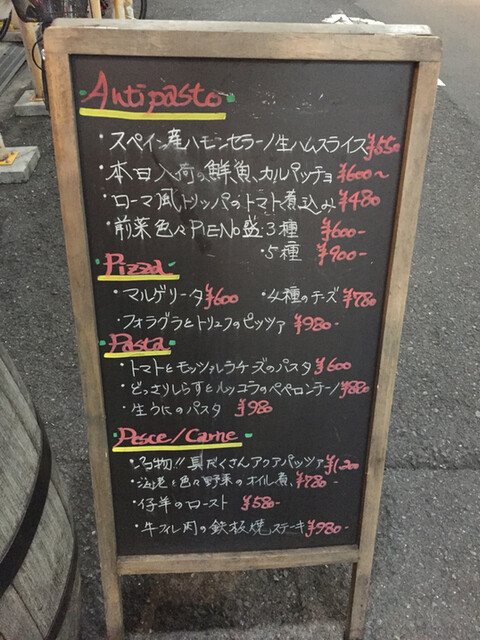 Antipasto
・スペイン産ハモンセラーノ生ハムスライス ¥550
・本日入荷の鮮魚カルパッチョ ¥600〜
・ローマ風トリッパのトマト煮込み ¥480
・前菜色々PIENO盛 3種 ¥600-
・5種 ¥900-
Pizza
・マルゲリータ ¥600 ・4種のチーズ ¥780
・フォラグラとトリュフのピッツァ ¥980-
Pasta
・トマトとモッツァルラチーズのパスタ ¥600
・どっさりしらすとルッコラのペペロンチーノ ¥880
・生うにのパスタ ¥980
Pesce/Carne
・名物!! 具だくさんアクアパッツァ ¥1200
・海老と色々野菜のオイル煮 ¥780-
・仔羊のロースト ¥580-
・牛フィレ肉の鉄板焼ステーキ ¥980-